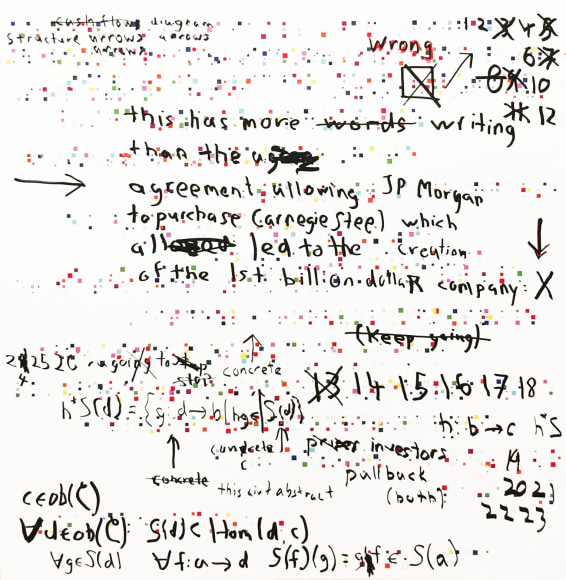 cash flow diagram
structure arrows arrows
arrows
1 2 3 4 5
Wrong
6 7
8 9 10
11 12
this has more words writing
than the
agreement allowing JP Morgan
to purchase Carnegie Steel which
led to the creation
of the 1st billion dollar company: X
(keep going)
25 26 going to stop
stop
concrete
13 14 15 16 17 18
h*S(d) = {g: d→b | hg∈S(d)}
h: b→c h*S
concrete
c
prizes investors 19
concrete
this aint abstract
pullback
(both): 20 21
22 23
c∈ob(C)
∀d∈ob(C) S(d)⊂Hom(d,c)
∀g∈S(d) ∀f: a→d S(f)(g) = gf ∈ S(a)